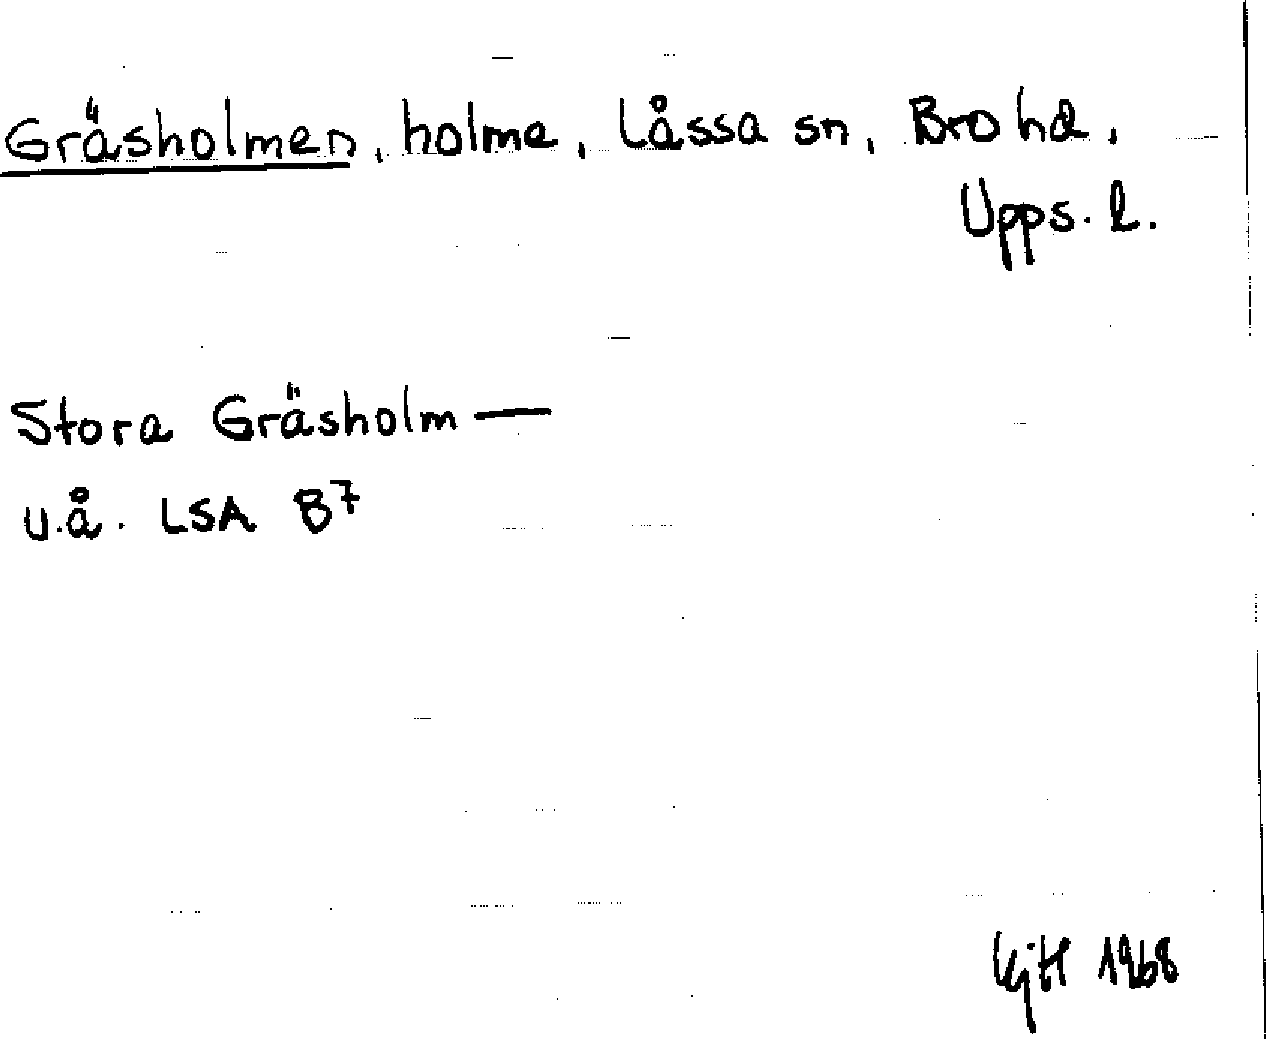 Gräsholmen, holme, Låssa sn, Bro hd,
Upps. l.
Stora Gräsholm —
u.å. LSA B7
1968